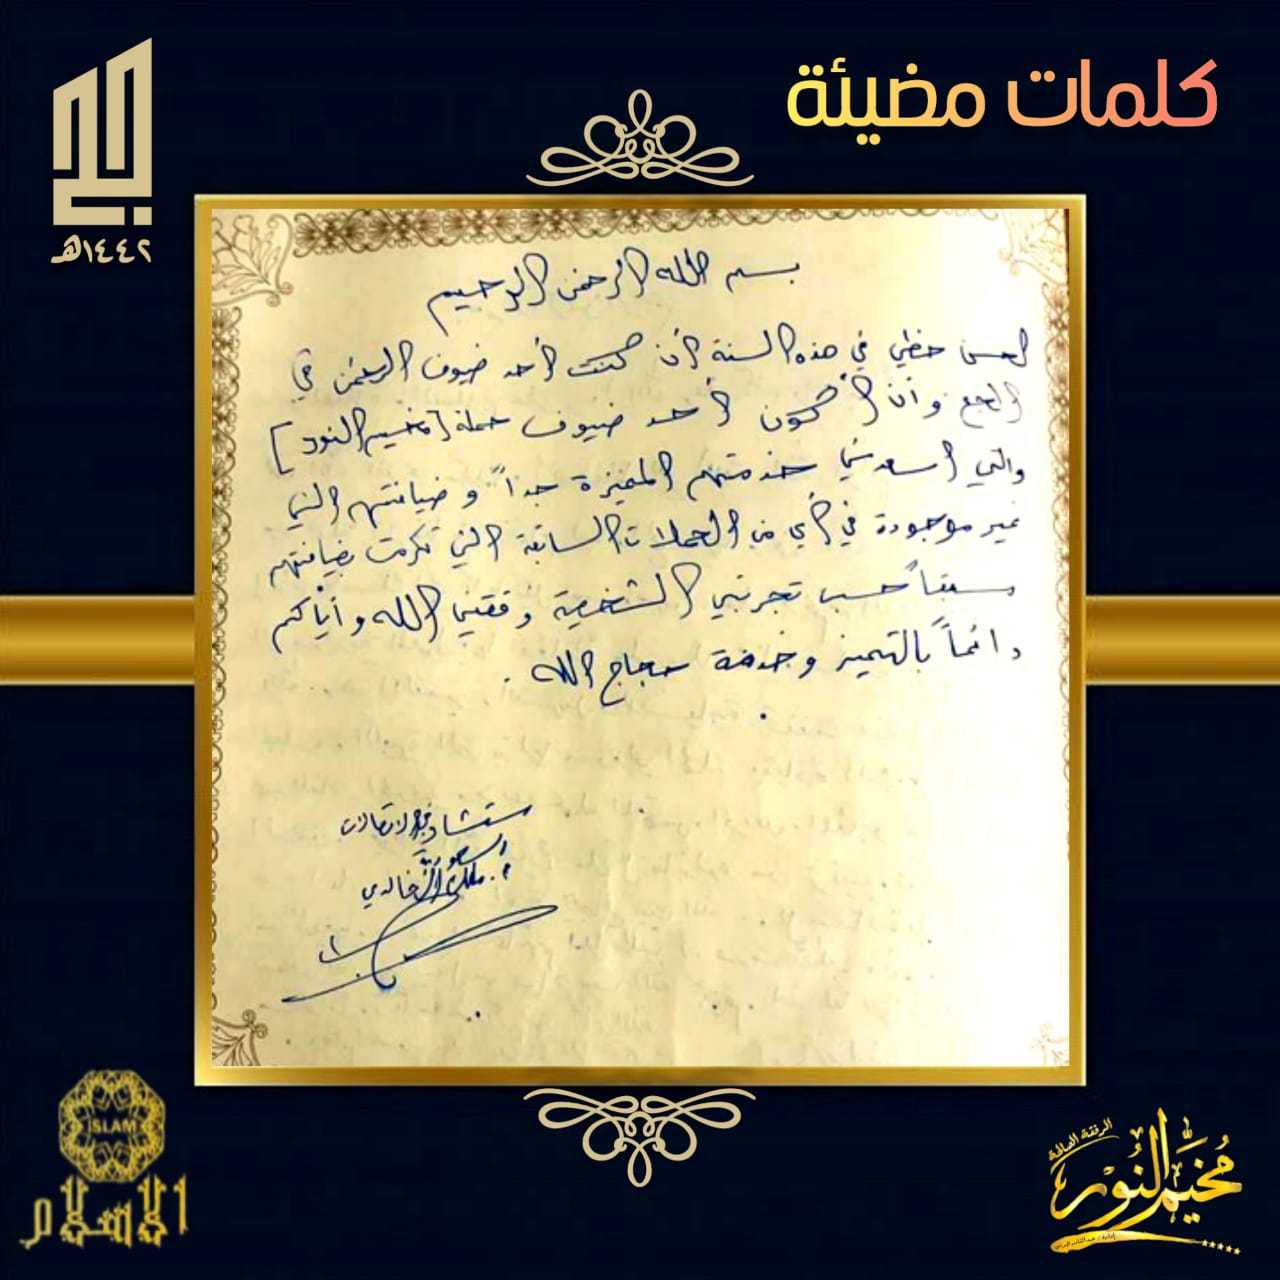 كلمات مضيئة
١٤٤٢هـ
بسم الله الرحمن الرحيم
لحسن حظي في هذه السنة أن كنت أحد ضيوف الرحمن في
الحج وأن أكون أحد ضيوف حملة [مخيم النور]
والتي أسعدتني خدمتهم المميزة جداً وضيافتهم التي
غير موجودة في أي من الحملات السابقة التي تكرمت بضيافتهم
سبقاً حسب تجربتي الشخصية وفقني الله وأياكم
دائماً بالتميز وخدمة حجاج الله.
مستشار الاتصالات
السعودية
أ. الخالدي
ISLAM
الإسلام
الرفقة الصالحة
مخيم النور